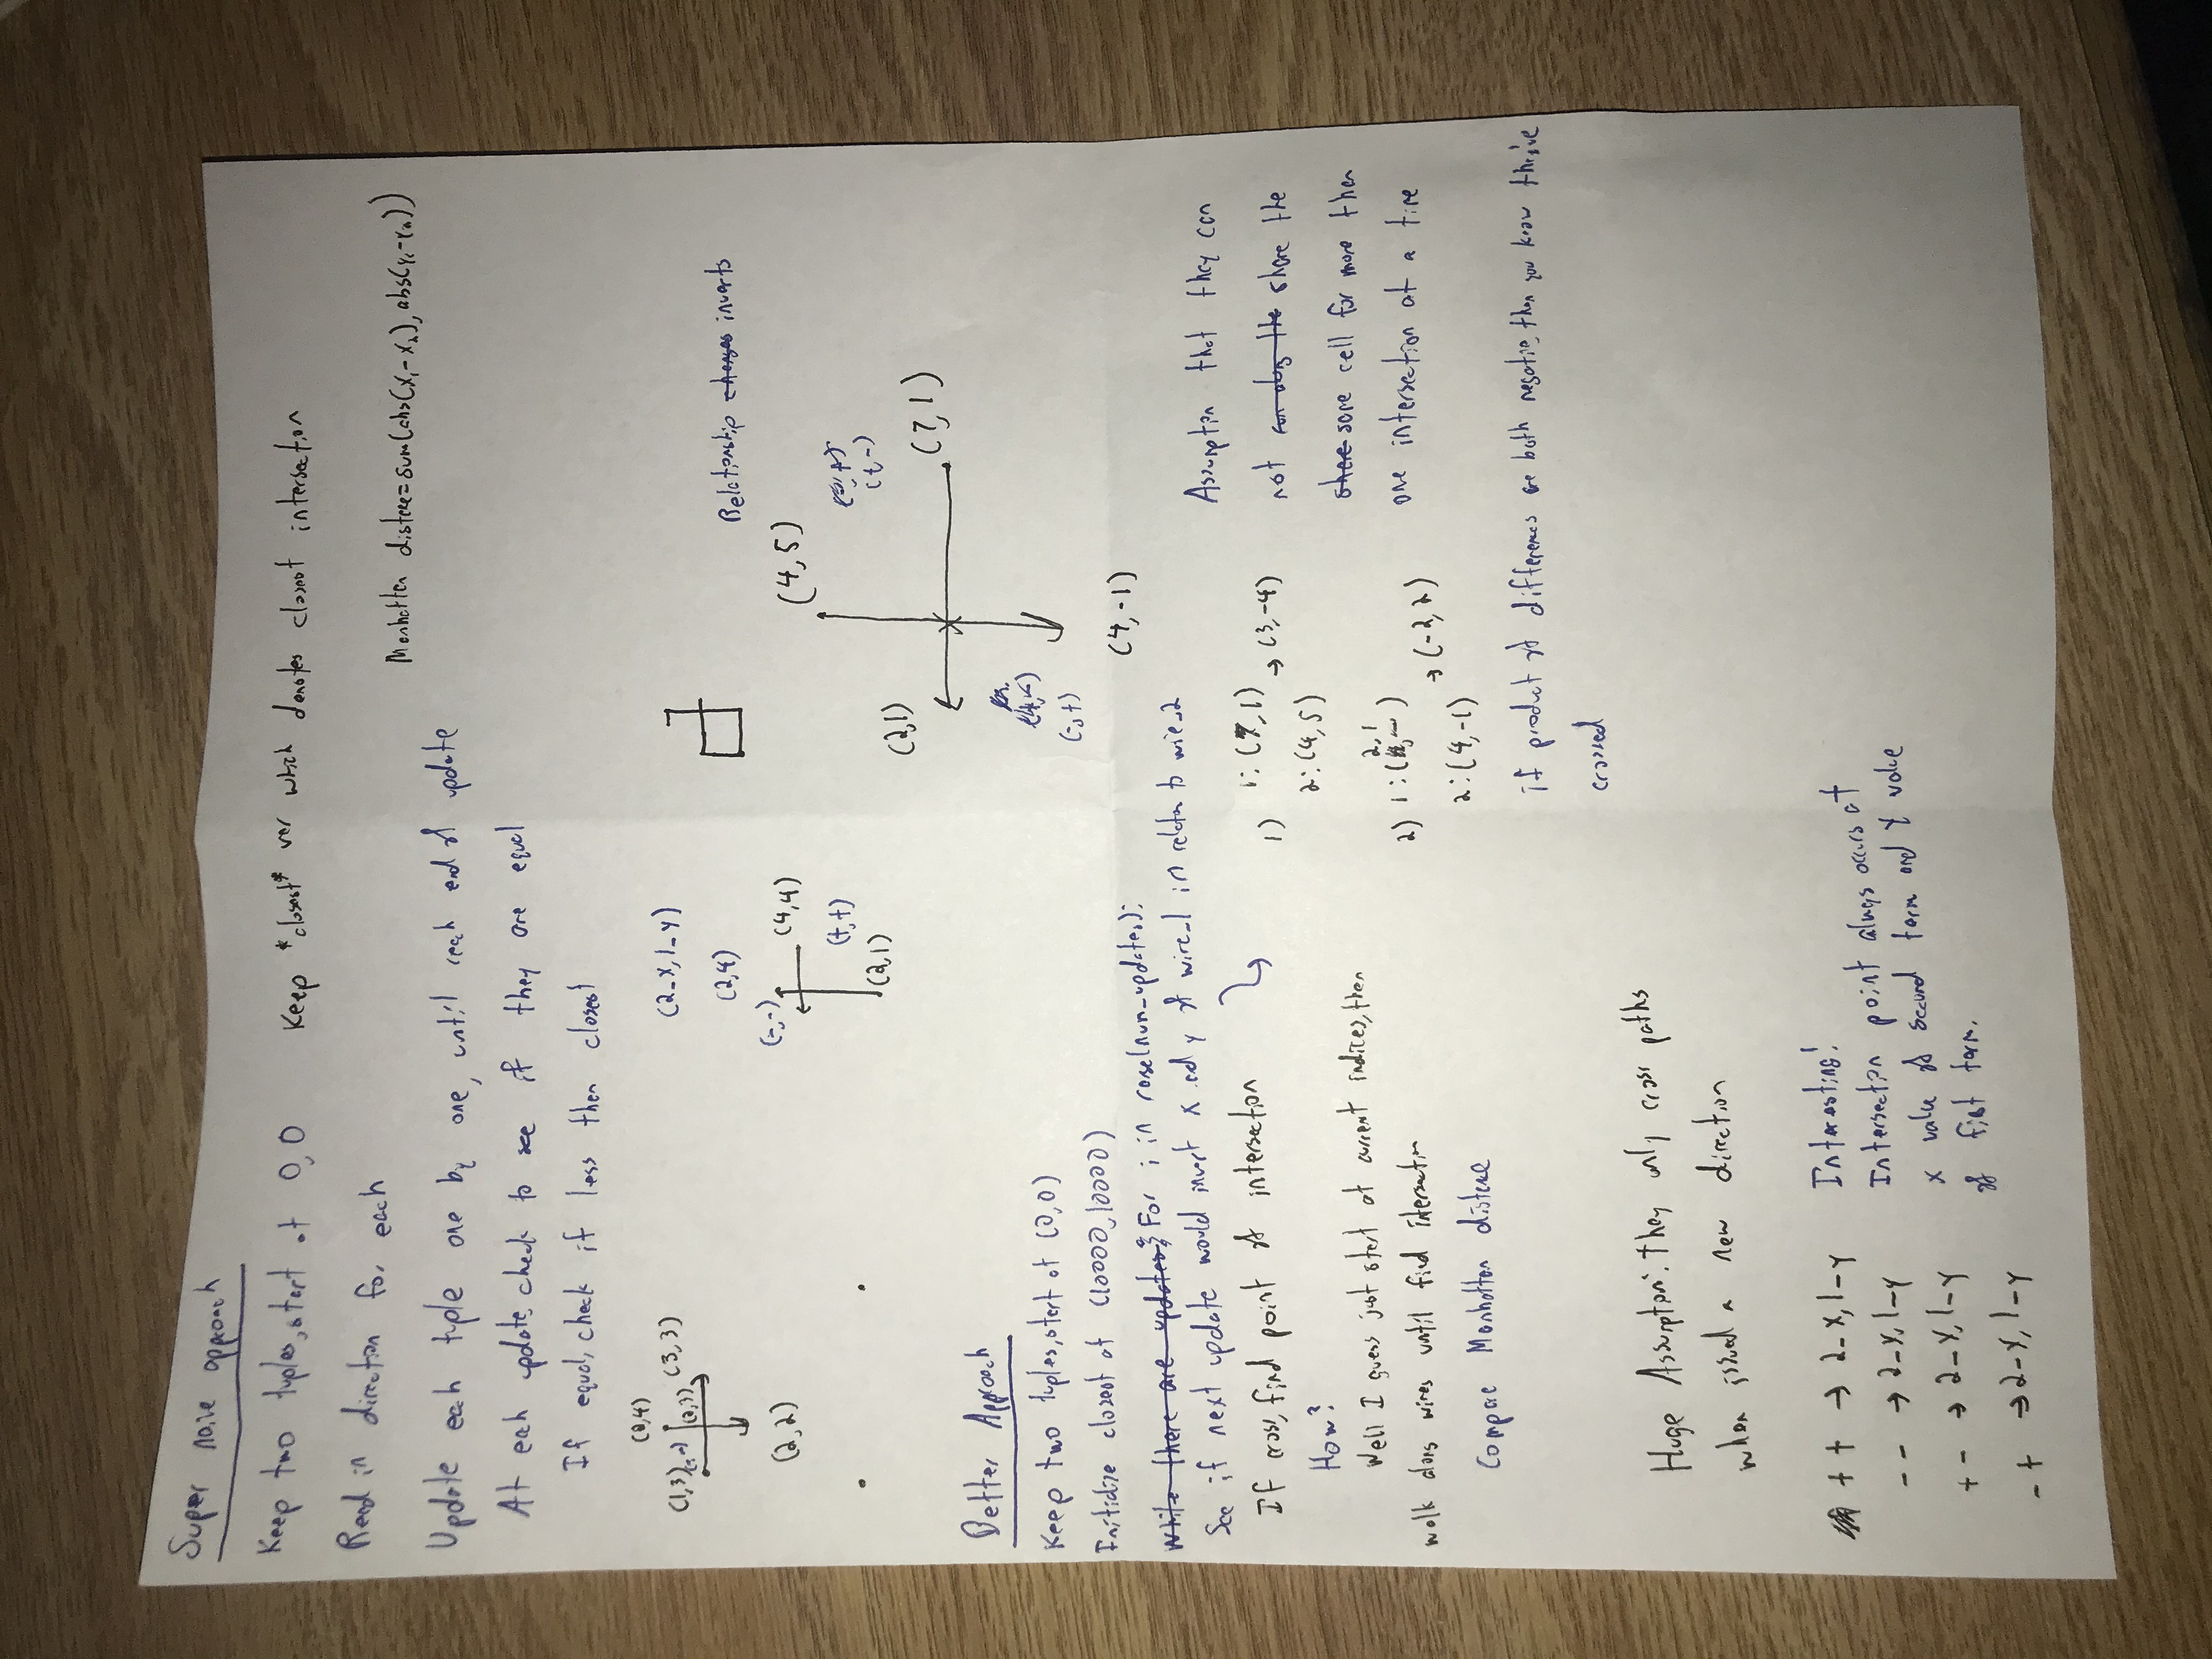 Super naive approach
Keep two tuples, start at 0,0
Keep *closest* var which denotes closest intersection
Read in direction for each
Manhattan distance=sum(abs(x₁-x₂), abs(y₁-y₂))
Update each tuple one by one, until reach end of update
At each update, check to see if they are equal
If equal, check if less then closest
(2,4)
(1,3) (-,-) (2,3) (3,3)
(2,2)
(2_x, 1_y)
(2,4)
(-,-) (4,4)
(+,+)
(2,1)
Relationship changes inverts
(4,5)
(+,-)
(2,1)
(7,1)
(-,+)
(4,-1)
Better Approach
Keep two tuples, start at (0,0)
Initialize closest at (10000,10000)
While there are updates: For i in range(num_updates):
See if next update would invert x and y of wire_1 in relation to wire_2
If cross, find point of intersection
How?
Well I guess just start at current indices, then
walk along wires until find intersection
Compare Manhattan distance
1) 1: (7,1) → (3,-4)
2: (4,5)
2) 1: (2,1) → (-2,2)
2: (4,-1)
Assumption that they can
not run along the share the
share same cell for more than
one intersection at a time
if product of differences are both negative, then you know they've
crossed
Huge Assumption: they only cross paths
when issued a new direction
+ + → 2_x, 1_y
- - → 2_x, 1_y
+ - → 2_x, 1_y
- + → 2_x, 1_y
Interesting!
Intersection point always occurs at
x value of second term and Y value
of first term.